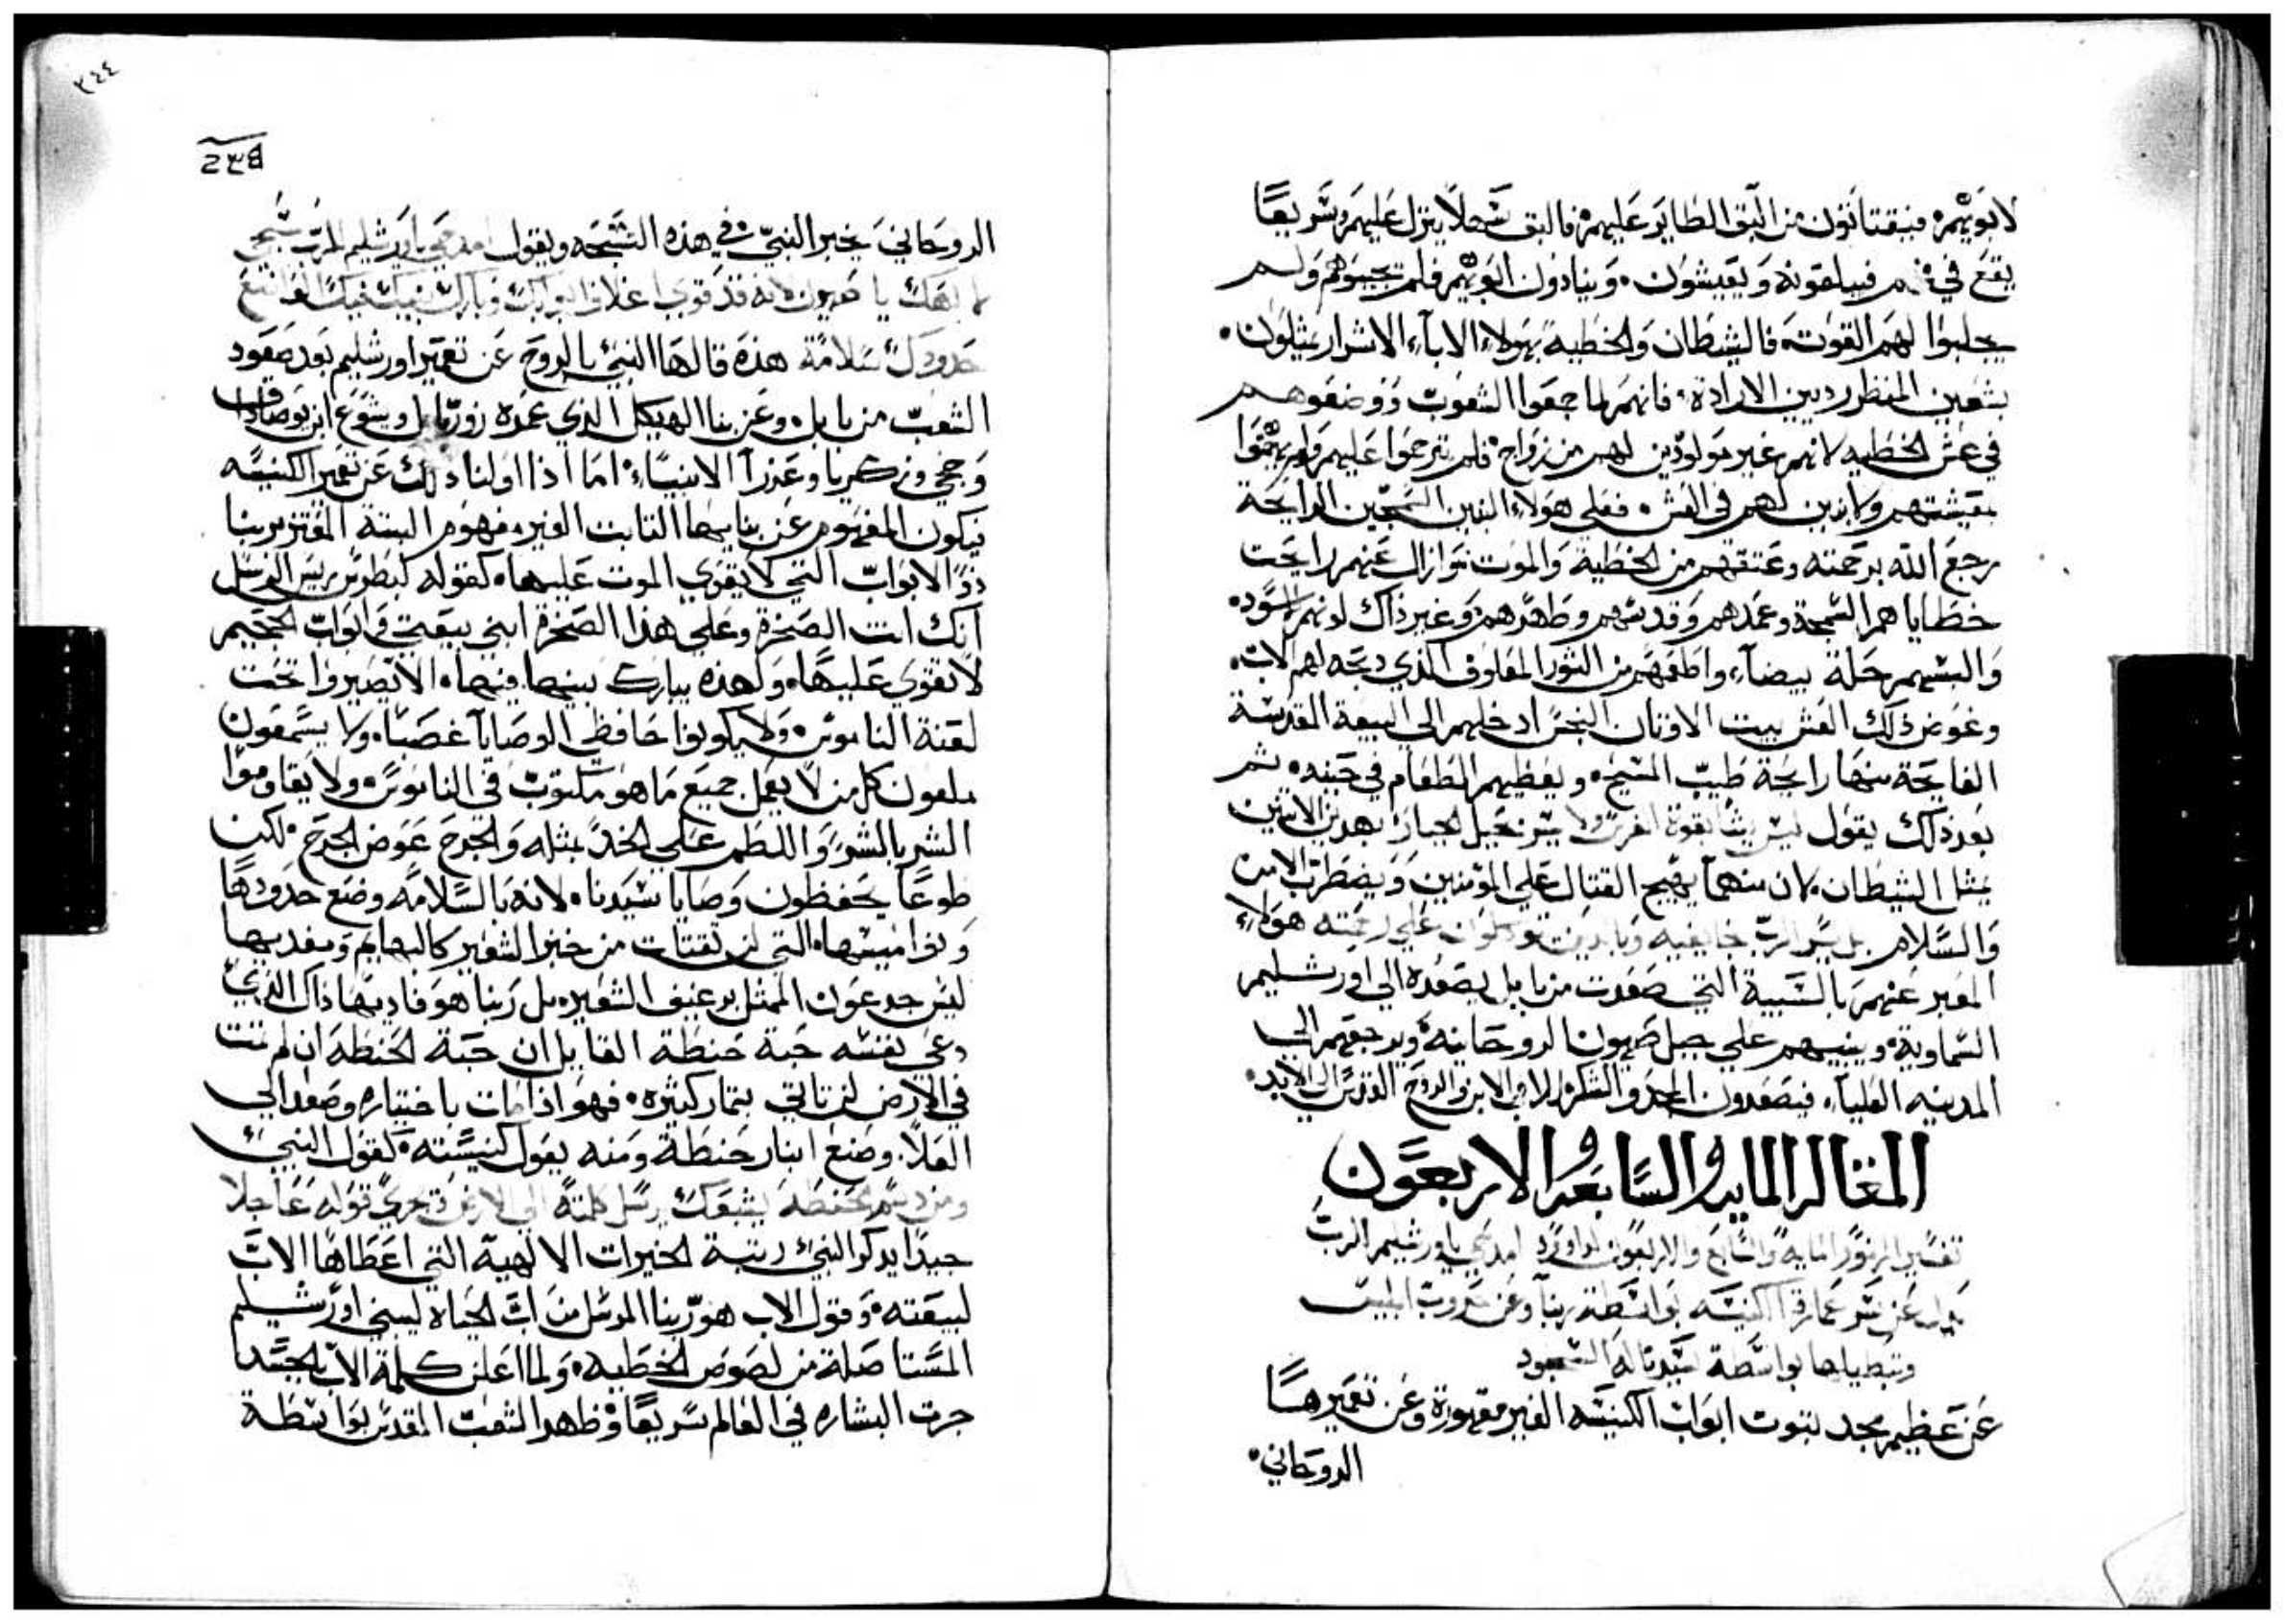 لابويهم فيقتاتون من البق الطاير عليهم فالبق شحلا ينزل عليهم وسريعا
يقع في فمهم فيبلعونه ويعيشون وينادون ابويهم فلم يجيبوهم ولم
يجلبوا لهم القوت فالشيطان والخطيه بهولاء الاباء الاشرار يمثلون
بشعين المنظر رديين الارادة فانهم لما جمعوا الشعوب ووضعوهم
في عش الخطيه لانهم غير مولودين لهم من زواج فلم يترحموا عليهم ولم يهتموا
بعيشتهم ولانهم في العش فعلي هولاء البنين السمجين الرايحة
رجع الله برحمته وعتقهم من الخطية والموت وازال عنهم رايحت
خطاياهم السمجة وعمدهم وقدسهم وطهرهم وغير ذاك لونهم السود
والبسهم حلة بيضاء واطعمهم من الثور المعلوف الذي دبحه لهم الاب
وعوض ذلك العش بيت الاوتان النجس ادخلهم الي البيعة المقدسة
الفايحة منها رايحة طيب المسيح ويعطيهم الطعام في حينه ثم
بعد ذلك يقول ليس يشا بقوة الفرس ولا يسر بحيل الجبار بهدين الاتنين
يمثل الشيطان لان منهما يهيج القتال علي المومنين ويضطرب الامن
والسلام بل يسر الرب خايفيه وبالذين يتوكلون علي رحمته هولاء
المعبر عنهم بالسبية التي صعدت من بابل يصعده الي اورشليم
السماوية ويبنيهم علي جبل صهيون الروحانية ويرجعهم الي
المدينه العلياء فيصعدون المجد والشكر للاب والابن والروح القدس الي الابد
المقاله المايه والسابعه والاربعون
تفسير المزمور المايه والسابع والاربعون لداوود امدحي ياورشليم الرب
يدل عن سر عمار الكنيسه بواسطة ربنا وعن حروب ابليس
وتبطيلها بواسطة سيدنا له السجود
عن عظيم مجد تبوت ابواب الكنيسه الغير مقهورة وعن تعميرها
الروحاني
٢٤٤
الروحاني يخبر النبي في هذه التسبحه ويقول امدحي ياورشليم الرب سبحي
الهك يا صهيون لانه قد قوي اغلاق ابوابك وبارك بنيك فيك
حدودك سلامة هذه قالها النبي بالروح عن تعمير اورشليم بعد صعود
الشعب من بابل وعن بنا الهيكل الذي عمره زوربابل ويشوع ابن يوصاداق
وحجي وزكريا وعزرا الانبياء اما اذا اولنا ذلك عن تعمير الكنيسه
فيكون المفهوم عن بنايها التابت الغير مهدوم البتة المعتز بربنا
ذو الابواب التي لا يقوي الموت عليها كقوله لبطرس ريس الرسل
انك انت الصخرة وعلي هذا الصخرة ابني بيعتي وابواب الجحيم
لا تقوي عليها ولهذه يبارك بينها فيها الا يصيروا تحت
لعنة الناموس ولا يكونوا حافظي الوصايا غصبا ولا يسمعون
ملعون كل من لا يعمل جميع ما هو مكتوب في الناموس ولا يقاوموا
الشر بالشر واللطم علي الخد بمثله والجرح عوض الجرح لكن
طوعا يحفظون وصايا سيدنا لانه بالسلامه وضع حدودها
ونواميسها التي لن تقتات من خبز الشعير كالبهايم ومغديها
ليس جدعون الممثل برغيف الشعير بل ربنا هو فاديها ذاك الذي
دعي نفسه حبة حنطة القايل ان حبة الحنطة ان لم تمت
في الارض لن تاتي بتمار كثيره فهو اذا مات باختياره وصعد الي
العلا وصنع ابنار حنطة ومنه يعول كنيسته كقول النبي
ومن دسم الحنطه يشبعك يرسل كلمته الي الارض تجري قوله عاجلا
جيدا يدكر النبي رتبة الخيرات الالهية التي اعطاها الاب
لبيعته وقول الاب هو ربنا المرسل من اب الحياه ليبني اورشليم
المستاصلة من لصوص الخطيه ولما اعلن كلمة الاب بالجسد
جرت البشاره في العالم سريعا وظهر الشعب المقدس بواسطة